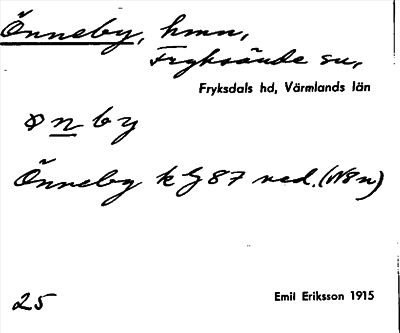 Önneby, hmn,
Fryksände sn,
Fryksdals hd, Värmlands län
ønby
Önneby k G 87 ned. (N8n)
25
Emil Eriksson 1915